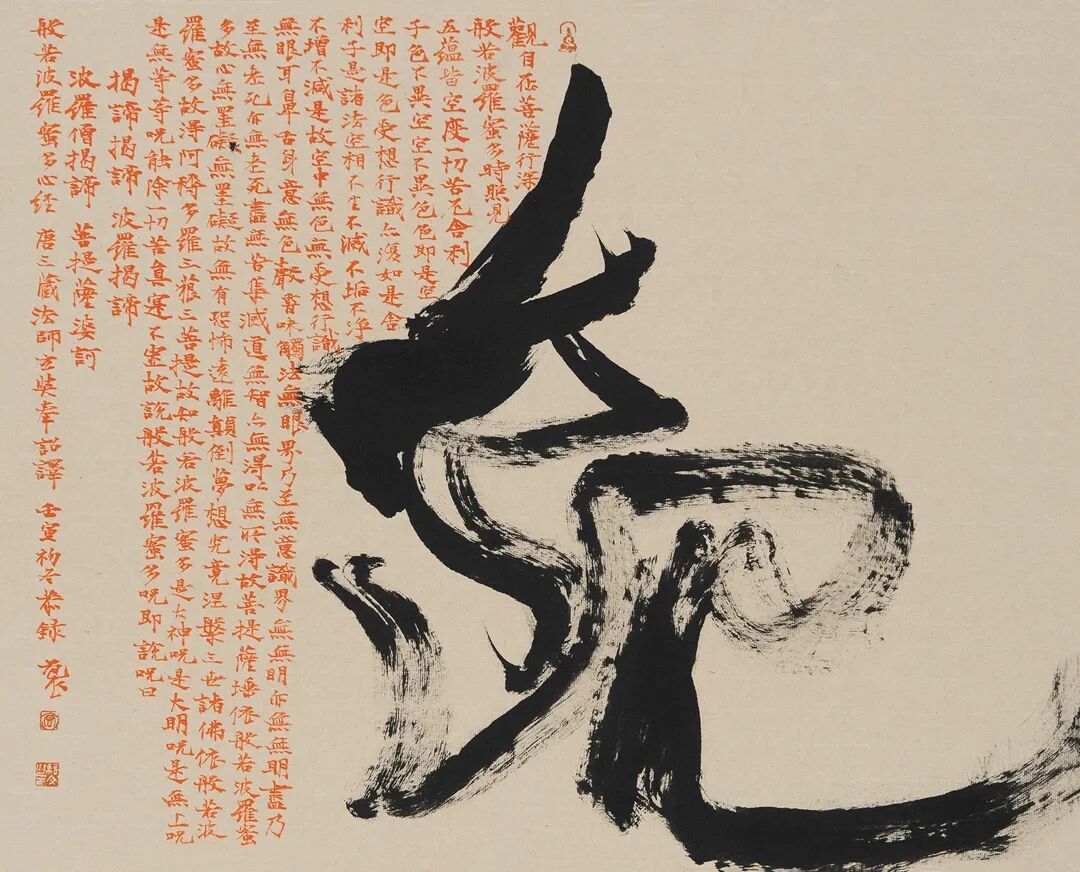 觀自在菩薩行深
般若波羅蜜多時照見
五蘊皆空度一切苦厄舍利
子色不異空空不異色色即是空
空即是色受想行識亦復如是舍
利子是諸法空相不生不滅不垢不淨
不增不減是故空中無色無受想行識
無眼耳鼻舌身意無色聲香味觸法無眼界乃至無意識界無無明亦無無明盡乃
至無老死亦無老死盡無苦集滅道無智亦無得以無所得故菩提薩埵依般若波羅蜜
多故心無罣礙無罣礙故無有恐怖遠離顛倒夢想究竟涅槃三世諸佛依般若波
羅蜜多故得阿耨多羅三藐三菩提故知般若波羅蜜多是大神呪是大明呪是無上呪
是無等等呪能除一切苦真實不虛故說般若波羅蜜多呪即說呪曰
揭諦揭諦 波羅揭諦
波羅僧揭諦 菩提薩婆訶
般若波羅蜜多心經 唐三藏法師玄奘奉詔譯 壬寅初冬恭録